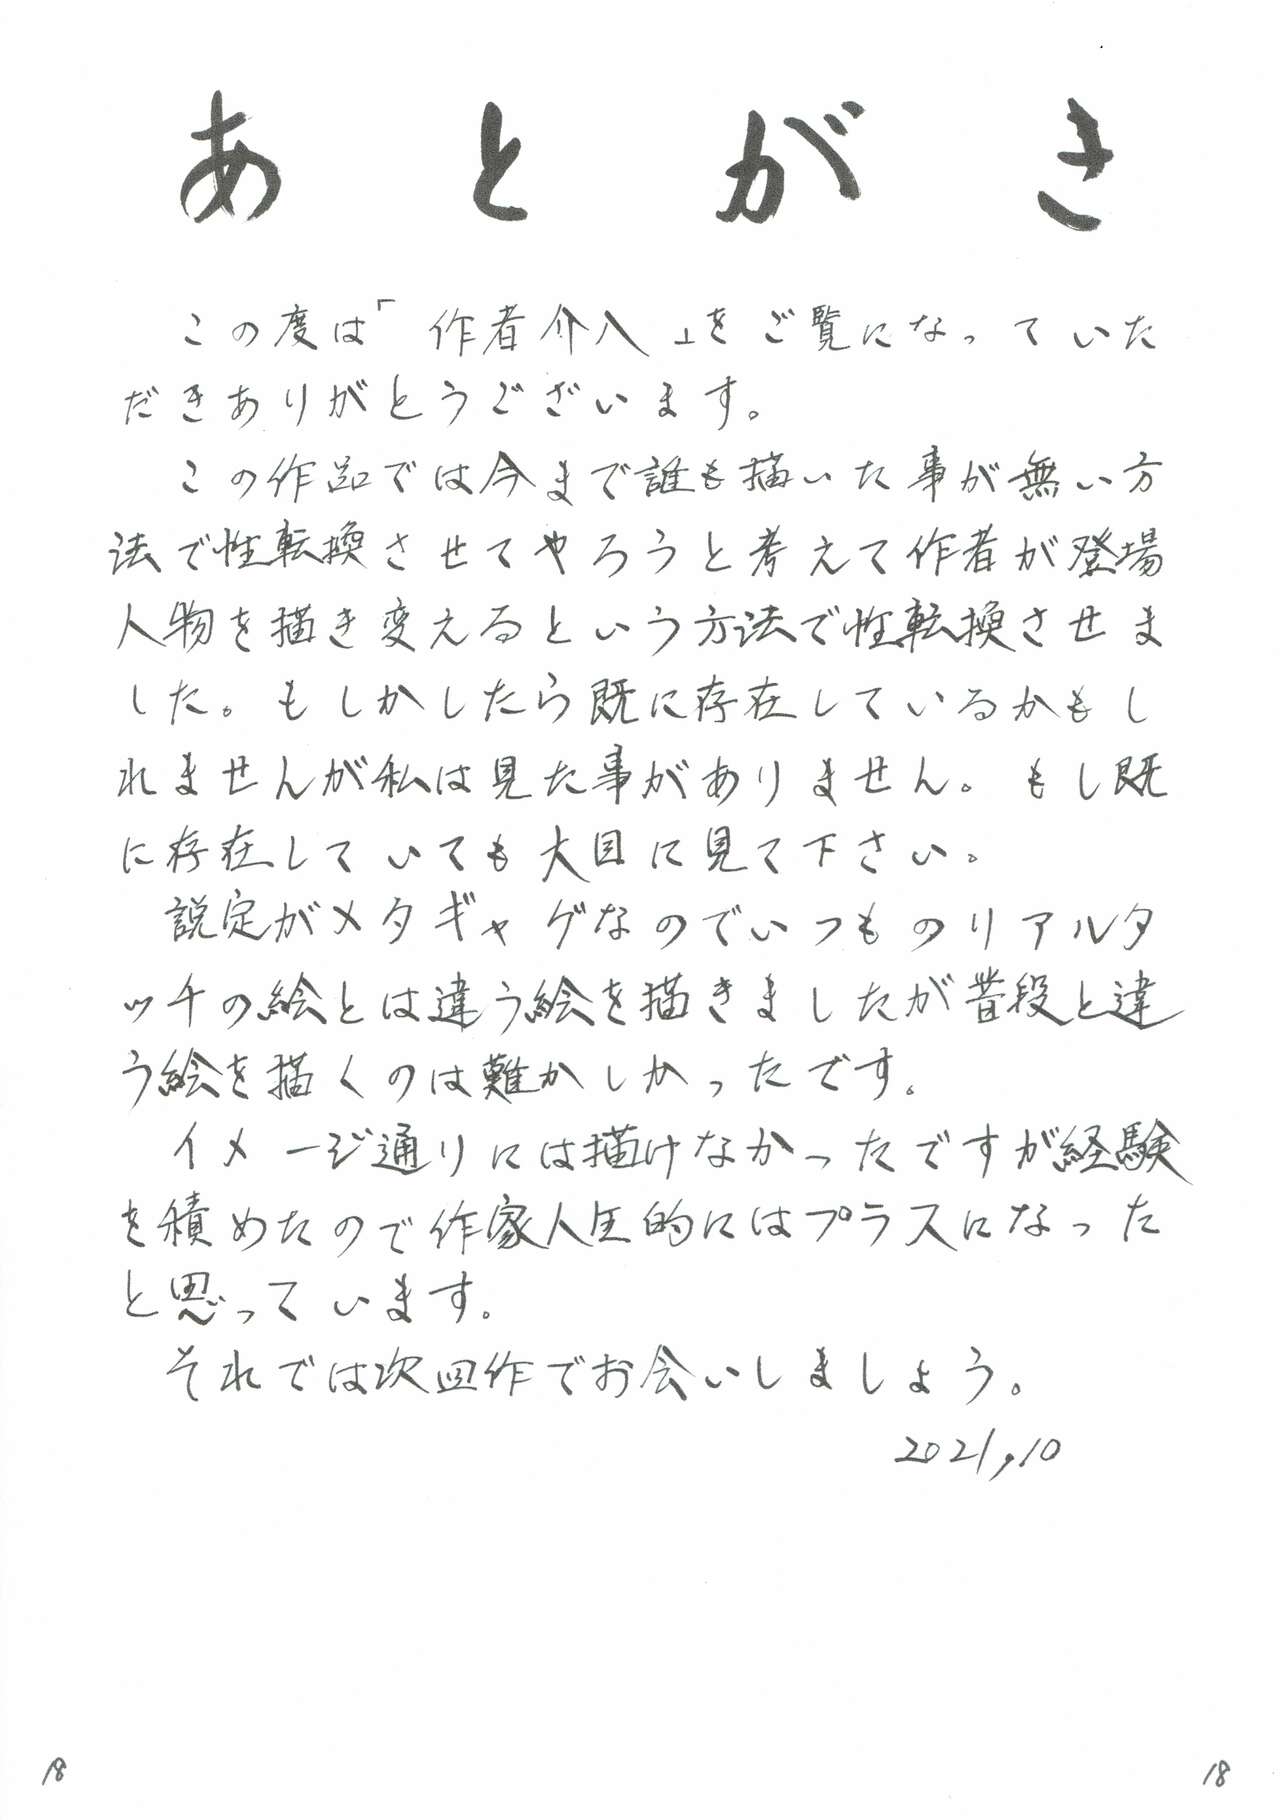 あとがき
この度は「作者介入」をご覧になっていた
だきありがとうございます。
この作品では今まで誰も描いた事が無い方
法で性転換させてやろうと考えて作者が登場
人物を描き変えるという方法で性転換させま
した。もしかしたら既に存在しているかもし
れませんが私は見た事がありません。もし既
に存在していても大目に見て下さい。
説定がメタギャグなのでいつものリアルタ
ッチの絵とは違う絵を描きましたが普段と違
う絵を描くのは難かしかったです。
イメージ通りには描けなかったですが経験
を積めたので作家人生的にはプラスになった
と思っています。
それでは次回作でお会いしましょう。
2021,10
18
18